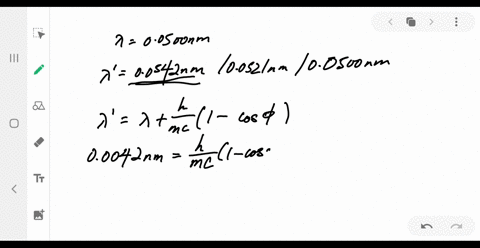 λ = 0.0500nm
λ' = 0.0542nm / 0.0521nm / 0.0500nm
λ' = λ + h/mc (1 - cos ϕ)
0.0042nm = h/mc (1 - cos
Tт